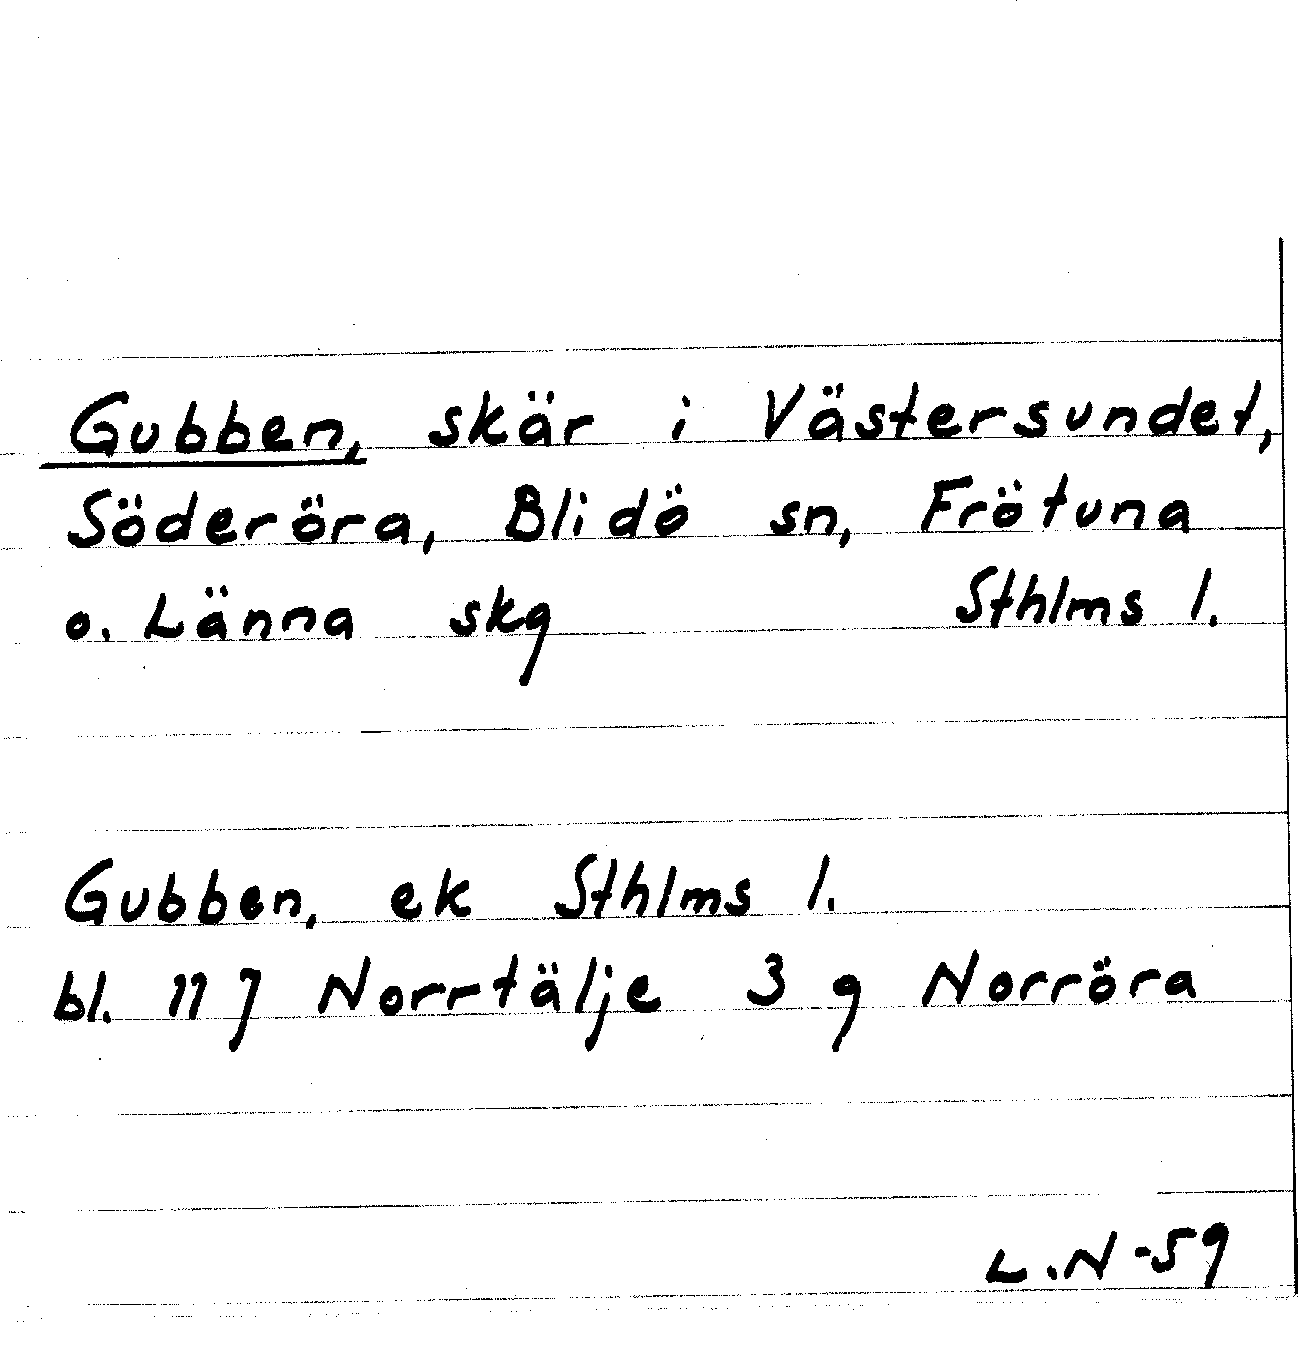 Gubben, skär i Västersundet,
Söderöra, Blidö sn, Frötuna
o. Länna skg Sthlms l.
Gubben, ek Sthlms l.
bl. 11 J Norrtälje 3 g Norröra
L.N -59